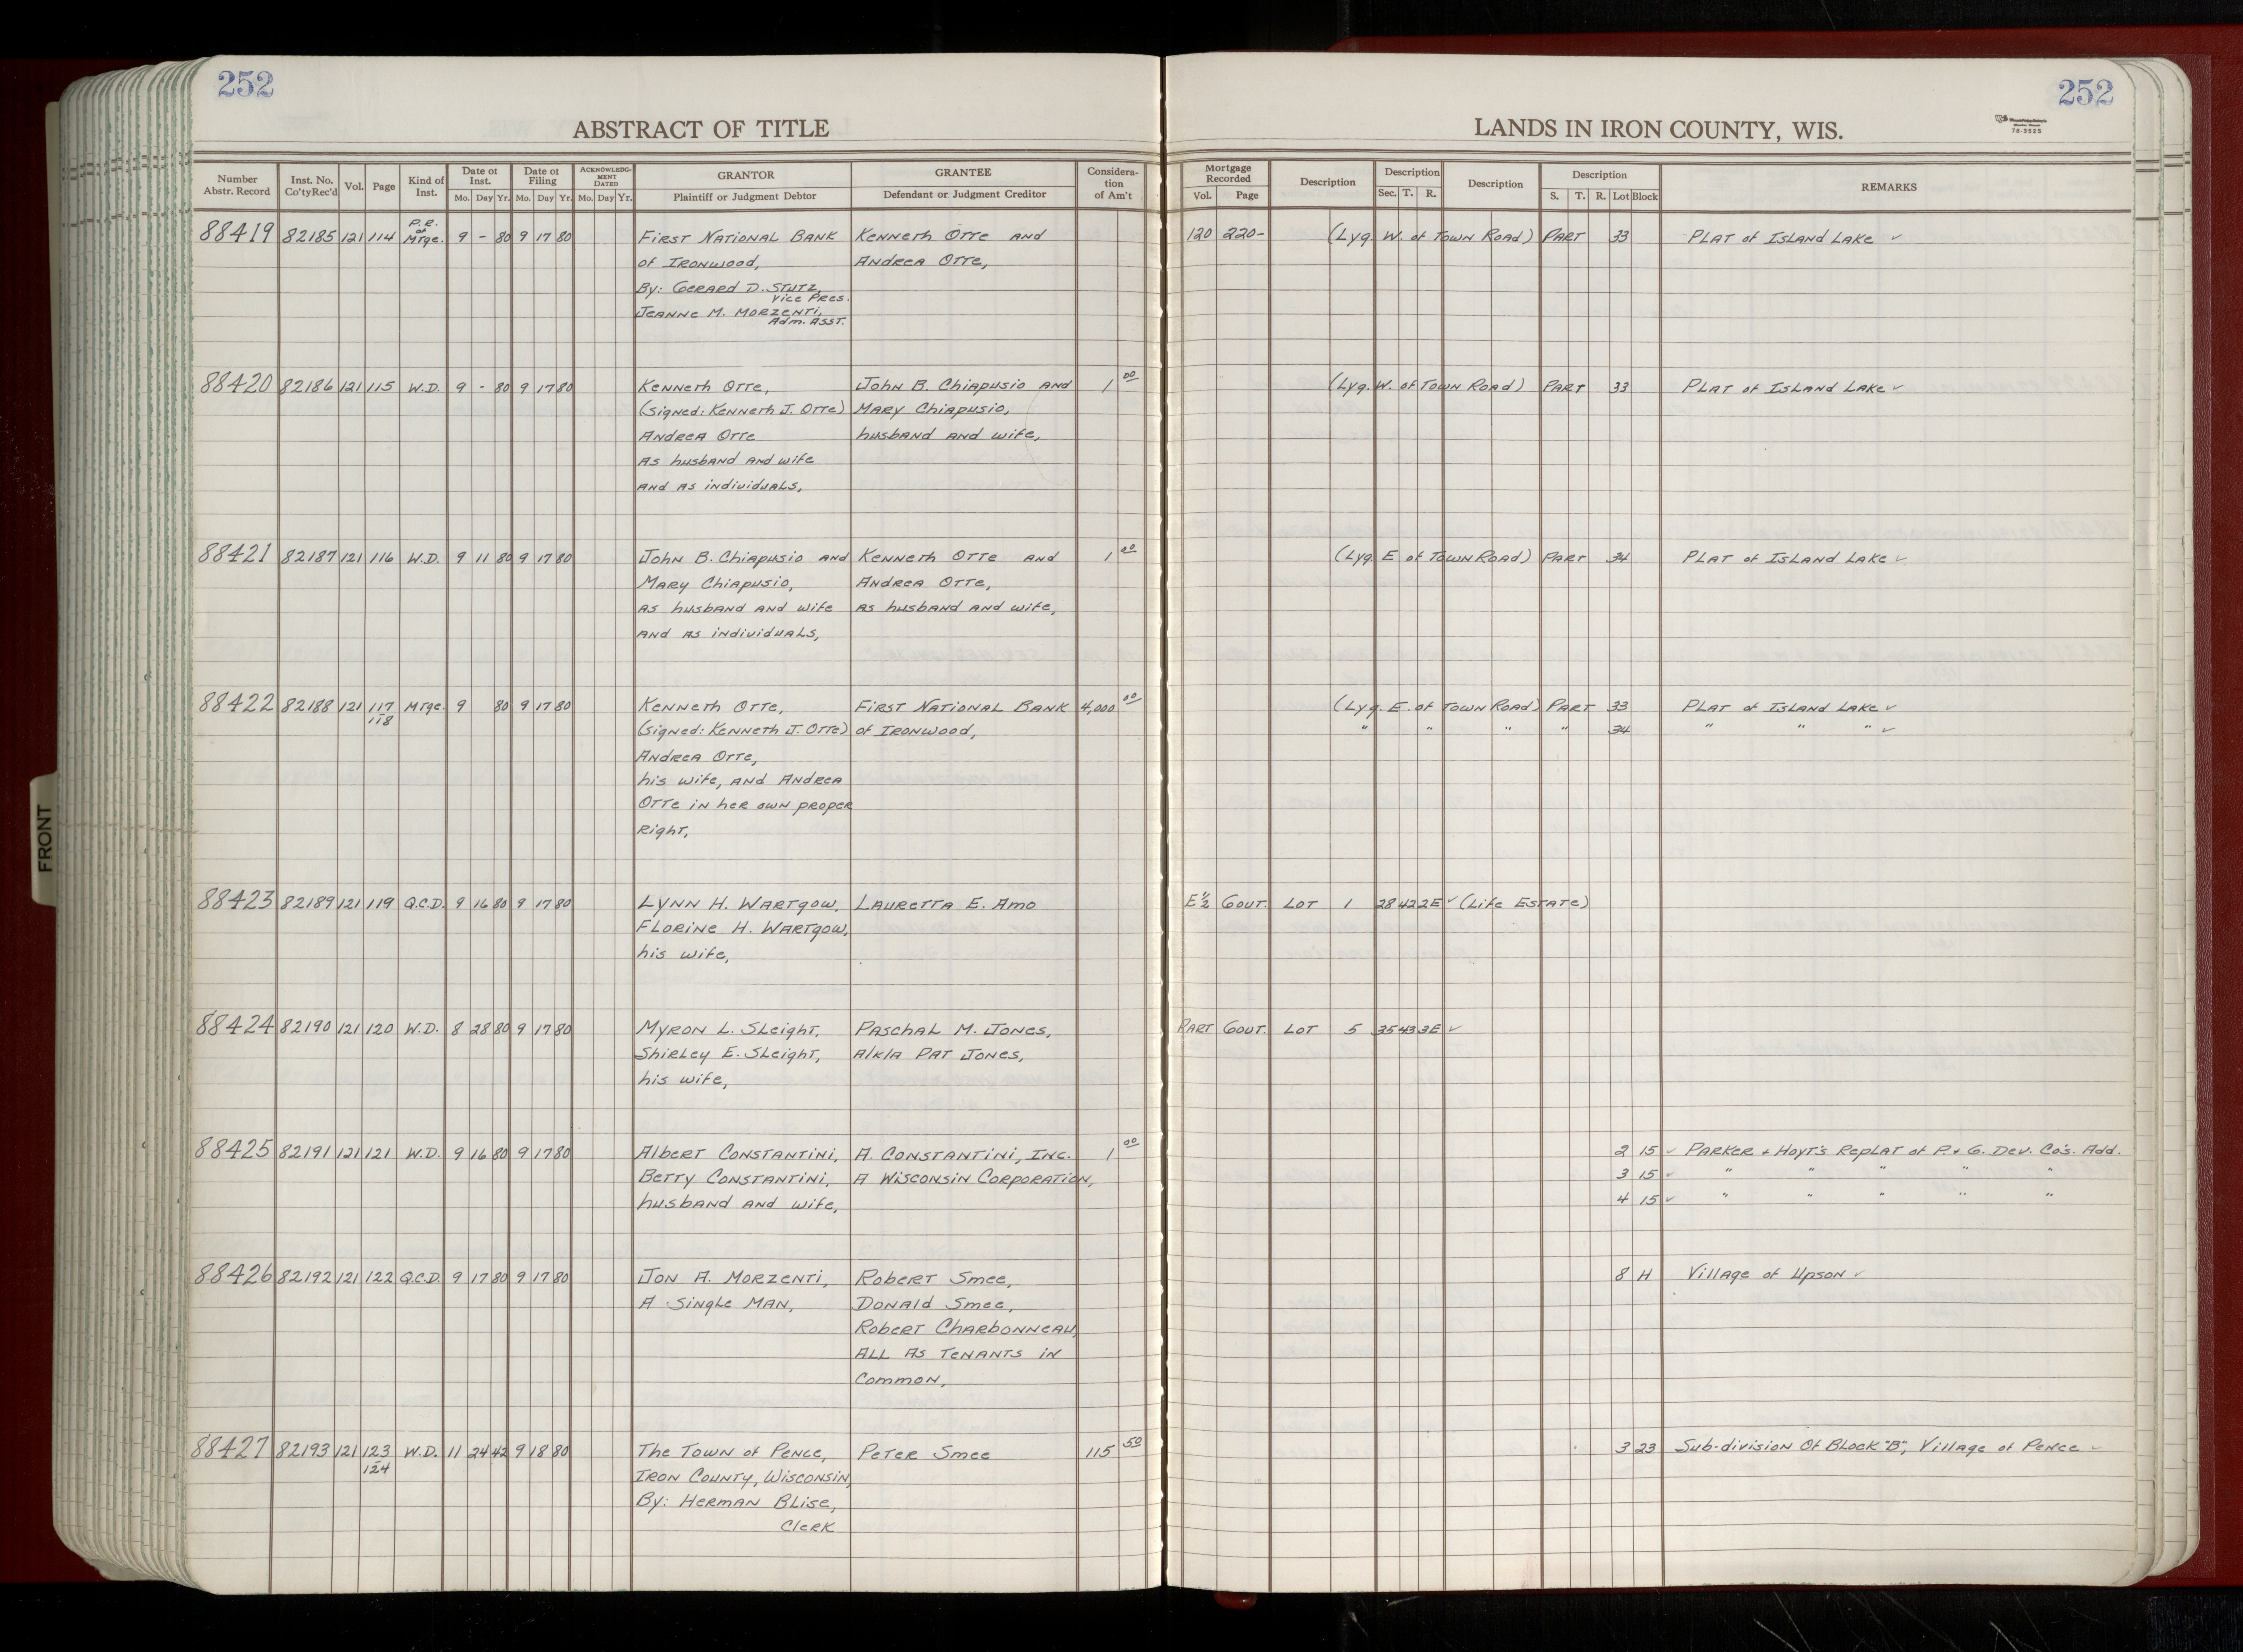 252
252
ABSTRACT OF TITLE
LANDS IN IRON COUNTY, WIS.
78-3525
Number Abstr. Record | Inst. No. Co'tyRec'd | Vol. | Page | Kind of Inst. | Date of Inst. Mo. Day Yr. | Date of Filing Mo. Day Yr. | ACKNOWLEDGMENT DATED Mo. Day Yr. | GRANTOR Plaintiff or Judgment Debtor | GRANTEE Defendant or Judgment Creditor | Consideration of Am't | Mortgage Recorded Vol. Page | Description | Description Sec. T. R. | Description | Description S. T. R. Lot Block | REMARKS
88419 82185 121 114 P.R. of Mtge. 9 - 80 9 17 80 First National Bank Kenneth Otte and 120 220- (Lyg. W. of Town Road) Part 33 Plat of Island Lake ✓
of Ironwood, Andrea Otte,
By: Gerard D. Stutz,
Vice Pres.
Jeanne M. Morzenti,
Adm. Asst.
88420 82186 121 115 W.D. 9 - 80 9 17 80 Kenneth Otte, John B. Chiapusio and 1 00 (Lyg. W. of Town Road) Part 33 Plat of Island Lake ✓
(Signed: Kenneth J. Otte) Mary Chiapusio,
Andrea Otte husband and wife,
as husband and wife
and as individuals,
88421 82187 121 116 W.D. 9 11 80 9 17 80 John B. Chiapusio and Kenneth Otte and 1 00 (Lyg. E of Town Road) Part 34 Plat of Island Lake ✓
Mary Chiapusio, Andrea Otte,
as husband and wife as husband and wife,
and as individuals,
88422 82188 121 117 Mtge. 9 80 9 17 80 Kenneth Otte, First National Bank 4,000 00 (Lyg. E. of Town Road) Part 33 Plat of Island Lake ✓
118 (Signed: Kenneth J. Otte) of Ironwood, " " " " 34 " " " ✓
Andrea Otte,
his wife, and Andrea
Otte in her own proper
right,
88423 82189 121 119 Q.C.D. 9 16 80 9 17 80 Lynn H. Wartgow, Lauretta E. Amo E½ Gout. Lot 1 28 42 2E ✓ (Life Estate)
Florine H. Wartgow,
his wife,
88424 82190 121 120 W.D. 8 28 80 9 17 80 Myron L. Sleight, Paschal M. Jones, Part Gout. Lot 5 35 43 3E ✓
Shirley E. Sleight, a/k/a Pat Jones,
his wife,
88425 82191 121 121 W.D. 9 16 80 9 17 80 Albert Constantini, A. Constantini, Inc. 1 00 2 15 ✓ Parker & Hoyt's Replat of P. & G. Dev. Co's. Add.
Betty Constantini, A Wisconsin Corporation, 3 15 ✓ " " " " "
husband and wife, 4 15 ✓ " " " " "
88426 82192 121 122 Q.C.D. 9 17 80 9 17 80 Jon A. Morzenti, Robert Smee, 8 H Village of Upson ✓
A Single Man, Donald Smee,
Robert Charbonneau,
all as tenants in
common,
88427 82193 121 123 W.D. 11 24 42 9 18 80 The Town of Pence, Peter Smee 115 50 3 23 Sub-division Of Block "B", Village of Pence ✓
124 Iron County, Wisconsin,
By: Herman Blise,
Clerk
FRONT